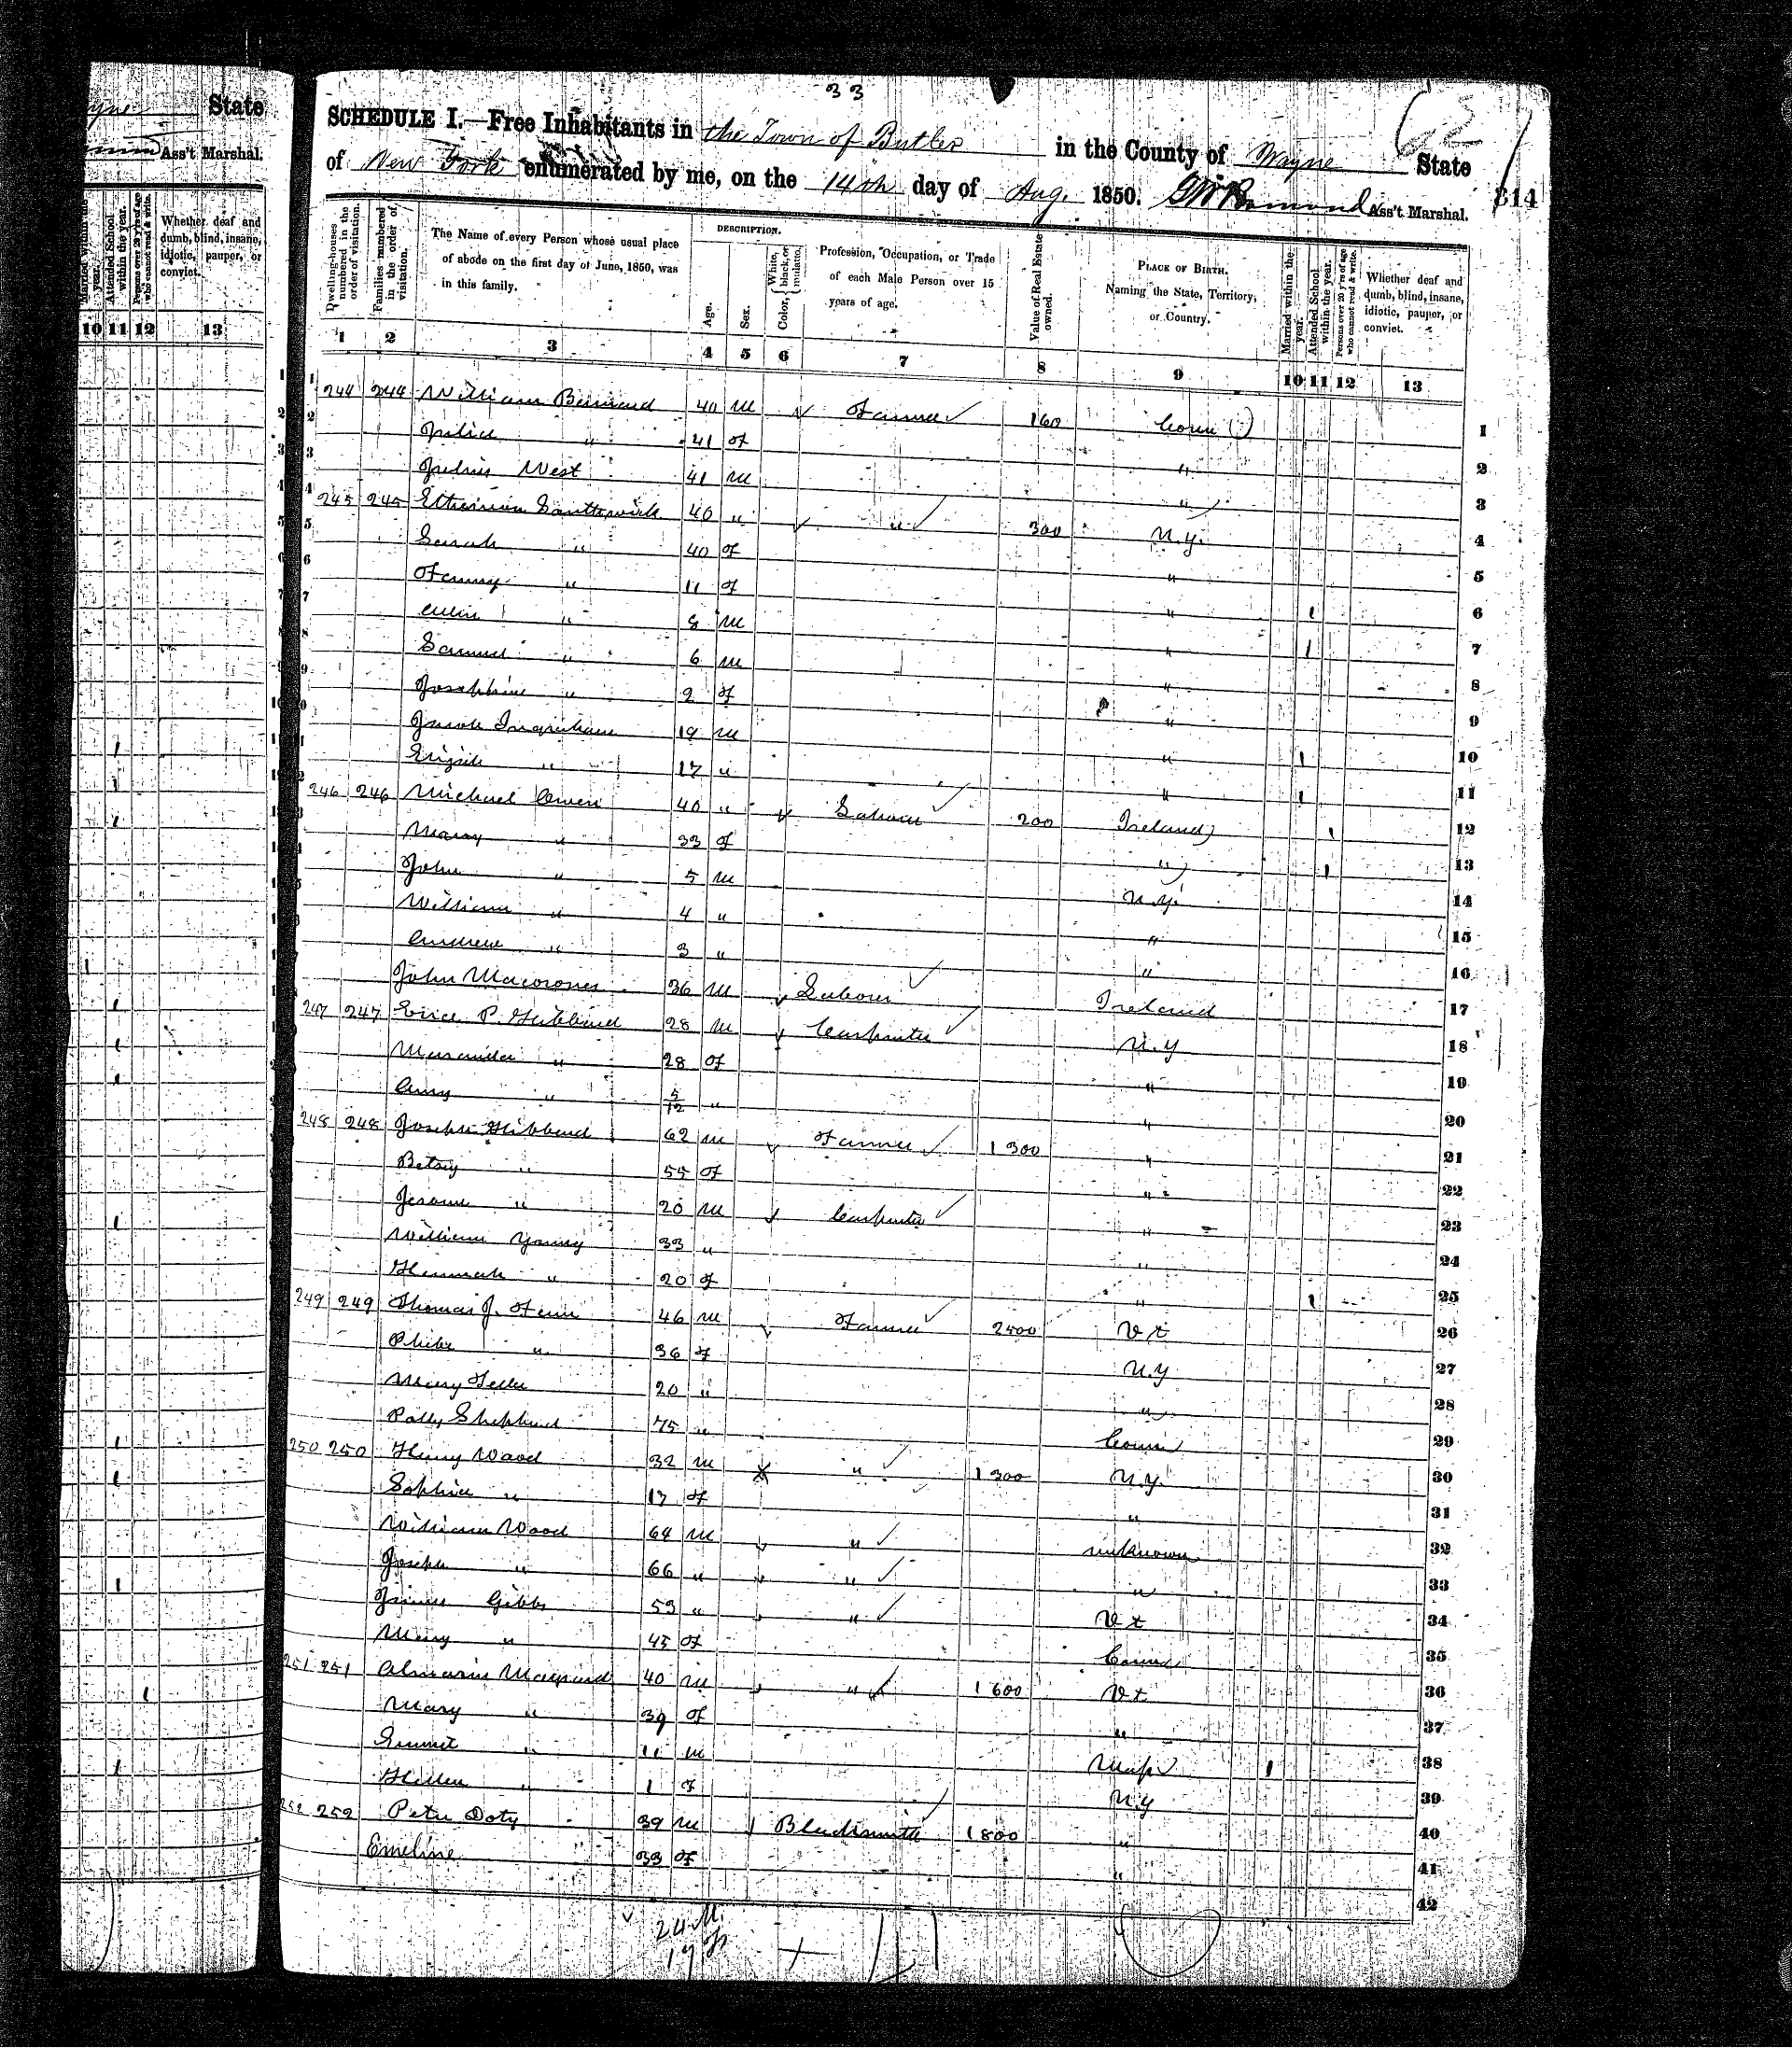 33
SCHEDULE I.—Free Inhabitants in the Town of Butler in the County of Wayne State
of New York enumerated by me, on the 14th day of Aug. 1850. Ass't Marshal. 314
State
Ass't Marshal.
Dwelling-houses numbered in the order of visitation.
Families numbered in the order of visitation.
The Name of every Person whose usual place of abode on the first day of June, 1850, was in this family.
DESCRIPTION.
Age.
Sex.
Color, White, black, or mulatto.
Profession, Occupation, or Trade of each Male Person over 15 years of age.
Value of Real Estate owned.
PLACE OF BIRTH. Naming the State, Territory, or Country.
Married within the year.
Attended School within the year.
Persons over 20 y'rs of age who cannot read & write.
Whether deaf and dumb, blind, insane, idiotic, pauper, or convict.
1 2 3 4 5 6 7 8 9 10 11 12 13
1 244 244 William 40 M Farmer 160 Conn 1
2 " 41 F " 2
3 Julius West 41 M " 3
4 245 245 40 " " 300 N.Y. 4
5 Sarah " 40 F " 5
6 Fanny " 11 F " 1 6
7 " 8 M " 1 7
8 Samuel " 6 M " 8
9 Josephine " 2 F " 9
Jacob Ingraham 19 M " 1 10
" 17 " " 1 11
246 246 Michael 40 " Labour 200 Ireland 1 12
Mary " 33 F " 1 13
John " 5 M N.Y. 14
William " 4 " " 15
Andrew " 3 " " 16
John 36 M Labour Ireland 17
247 247 P. Hibbard 28 M Carpenter N.Y 18
" 28 F " 19
Amy " 5/12 " " 20
248 248 Joseph Hibbard 62 M Farmer 1300 " 21
Betsy " 55 F " 22
Jerome " 20 M Carpenter " 23
William Young 33 " " 24
Hannah " 20 F " 1 25
249 249 Thomas J. Fenn 46 M Farmer 2500 Vt 26
Phebe " 36 F N.Y 27
Mary 20 " " 28
Polly Shephard 75 " Conn 29
250 250 Henry Wood 32 M " 1300 N.Y. 30
Sophia " 17 F " 31
William Wood 64 M " unknown 32
Joseph " 66 " " " 33
Gibbs 53 " " Vt 34
Mary " 45 F Conn 35
251 251 Maynard 40 M " 1600 Vt 36
Mary " 39 F " 37
Emmet " 11 M Mass 1 38
Hellen " 1 F N.Y 39
252 252 Peter Doty 39 M Blacksmith 1800 " 40
Emeline 33 F " 41
42
24 M.
17 F